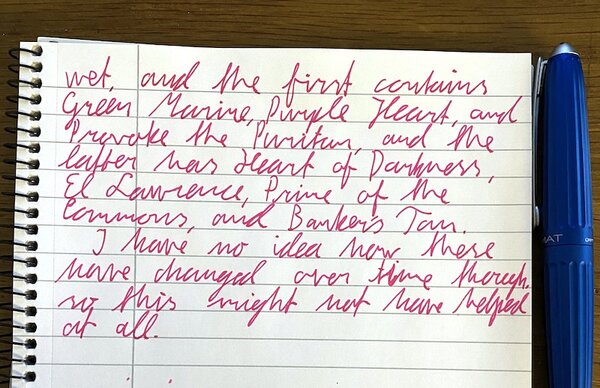 wet, and the first contains
Green Marine, Purple Heart, and
Provoke the Puritan, and the
latter has Heart of Darkness,
El Lawrence, Prime of the
Commons, and Banker's Tan.
I have no idea how these
have changed over time though.
so this might not have helped
at all.
MAT